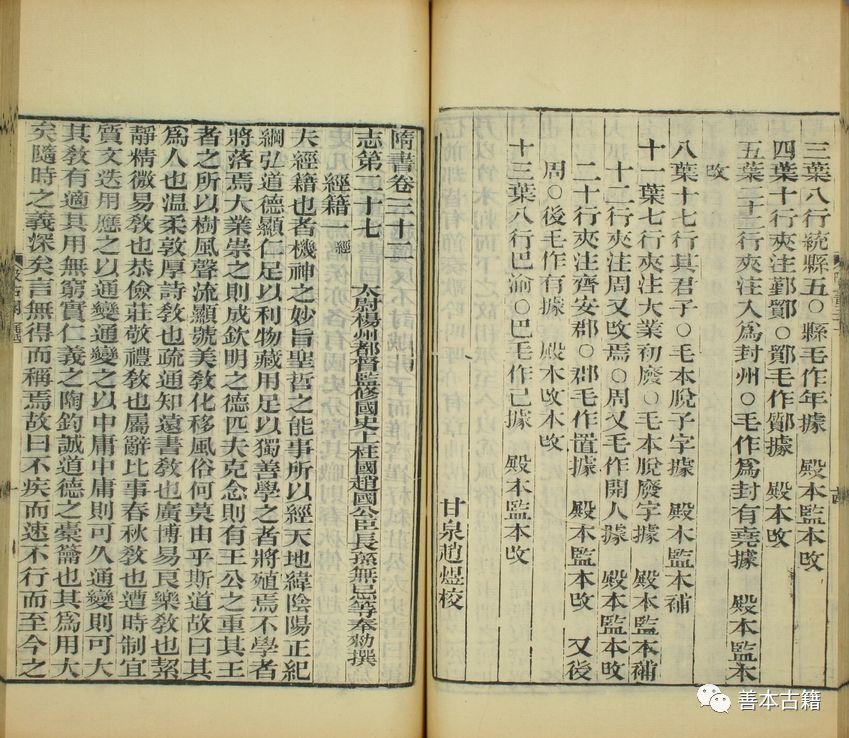 三葉八行統縣五○縣毛作年據　殿本監本改
四葉十行夾注鄞鄮○鄮毛作鄭據　殿本改
五葉二十二行夾注入爲封州○毛作爲封有堯據　殿本監本
改
八葉十七行其君子○毛本脫子字據　殿本監本補
十一葉七行夾注大業初廢○毛本脫廢字據　殿本監本補
十二行夾注周又改焉○周又毛作開人據　殿本監本改
二十行夾注齊安郡○郡毛作置據　殿本監本改　又後
周○後毛作有據　殿本改本改
十三葉八行巴渝○巴毛作已據　殿本監本改
甘泉趙煜校
隋書卷三十二
太尉楊州都督監修國史上柱國趙國公臣長孫無忌等奉勑撰
志第二十七
經籍一經
夫經籍也者機神之妙旨聖哲之能事所以經天地緯陰陽正紀
綱弘道德顯仁足以利物藏用足以獨善學之者將殖焉不學者
將落焉大業崇之則成欽明之德匹夫克念則有王公之重其王
者之所以樹風聲流顯號美教化移風俗何莫由乎斯道故曰其
爲人也溫柔敦厚詩教也疏通知遠書教也廣博易良樂教也絜
靜精微易教也恭儉莊敬禮教也屬辭比事春秋教也遭時制宜
質文迭用應之以通變通變之以中庸中庸則可久通變則可大
其教有適其用無窮實仁義之陶鈞誠道德之橐籥也其爲用大
矣隨時之義深矣言無得而稱焉故曰不疾而速不行而至今之
善本古籍